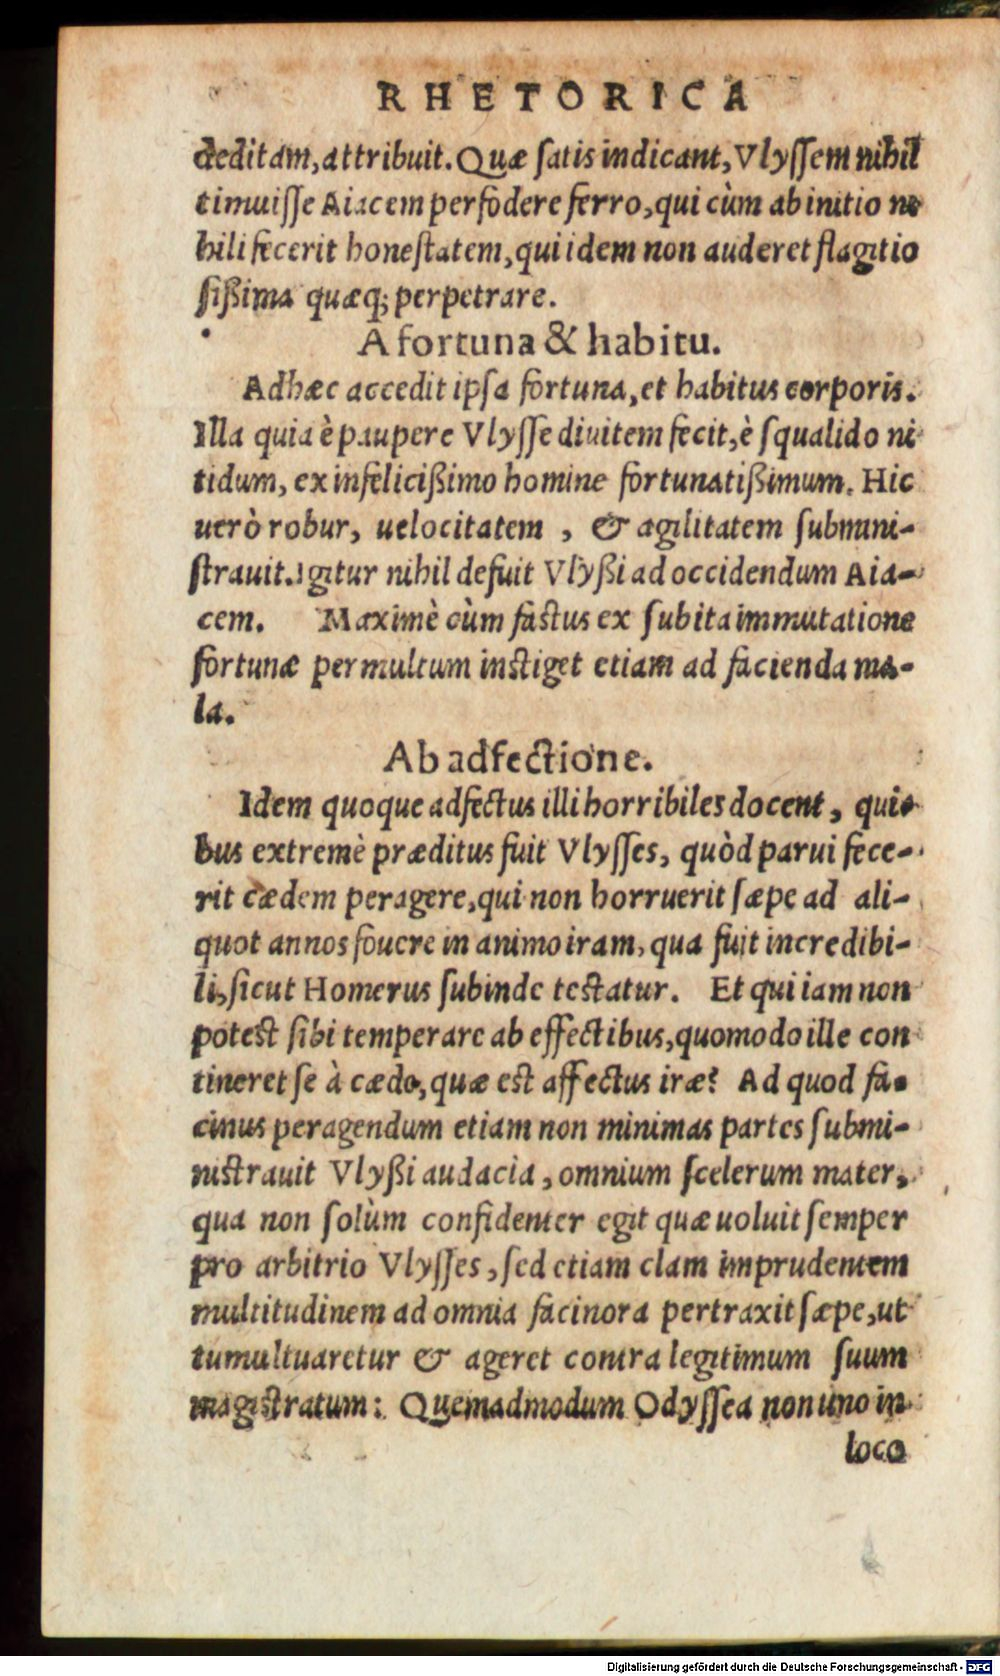 RHETORICA
deditam, attribuit. Quæ ſatis indicant, Vlyſſem nihil
timuiſſe Aiacem perfodere ferro, qui cùm ab initio ni
hili fecerit honeſtatem, qui idem non auderet flagitio
ſißima quæq; perpetrare.
A fortuna & habitu.
Adhæc accedit ipſa fortuna, et habitus corporis.
Illa quia è paupere Vlyſſe diuitem fecit, è ſqualido ni
tidum, ex infelicißimo homine fortunatißimum. Hic
uerò robur, uelocitatem, & agilitatem ſubmini-
ſtrauit. Igitur nihil defuit Vlyßi ad occidendum Aia-
cem. Maximè cùm faſtus ex ſubita immutatione
fortunæ permultum inſtiget etiam ad facienda ma-
la.
Ab adfectione.
Idem quoque adfectus illi horribiles docent, qui-
bus extremè præditus fuit Vlyſſes, quòd parui fece-
rit cædem peragere, qui non horruerit ſæpe ad ali-
quot annos fouere in animo iram, qua fuit incredibi-
li, ſicut Homerus ſubinde teſtatur. Et qui iam non
poteſt ſibi temperare ab effectibus, quomodo ille con
tineret ſe à cæde, quæ eſt affectus iræ? Ad quod fa-
cinus peragendum etiam non minimas partes ſubmi-
niſtrauit Vlyßi audacia, omnium ſcelerum mater,
qua non ſolùm confidenter egit quæ uoluit ſemper
pro arbitrio Vlyſſes, ſed etiam clam imprudentem
multitudinem ad omnia facinora pertraxit ſæpe, ut
tumultuaretur & ageret contra legitimum ſuum
magiſtratum: Quemadmodum Odyſſea non uno in
loco
Digitalisierung gefördert durch die Deutsche Forschungsgemeinschaft - DFG